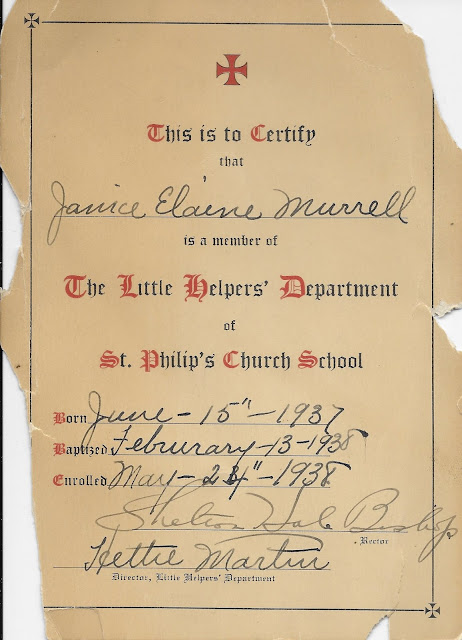 This is to Certify
that
Janice Elaine Murrell
is a member of
The Little Helpers' Department
of
St. Philip's Church School
Born June - 15" - 1937
Baptized Februrary - 13 - 1938
Enrolled May - 24" - 1938
Shelton Hale Bishop
Rector
Hettie Martin
Director, Little Helpers' Department